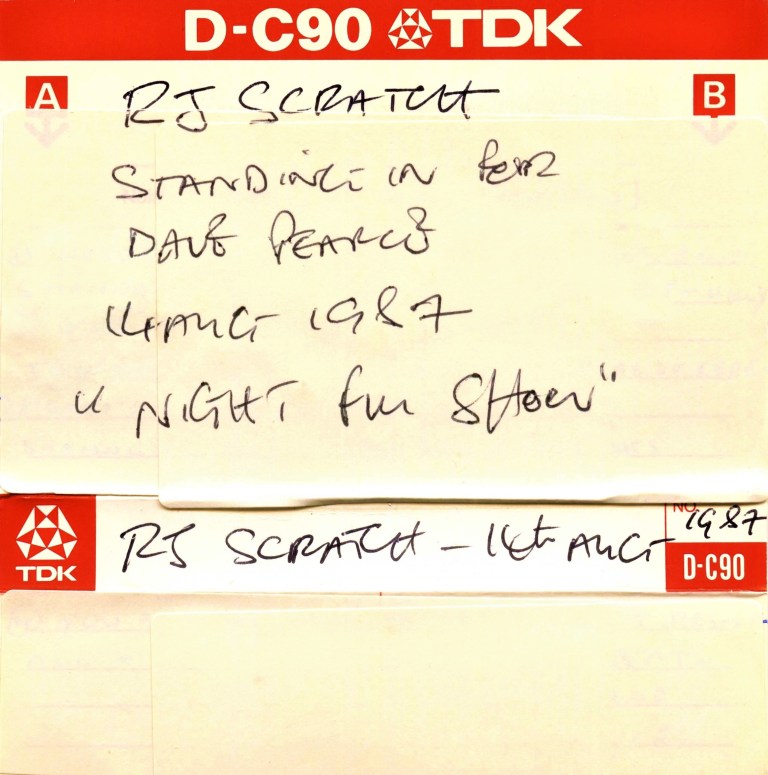 D-C90 TDK
A RJ SCRATCH B
STANDING IN FOR
DAVE PEARCE
14 AUG 1987
"NIGHT FM SHOW"
NO. 1987
TDK RJ SCRATCH - 14th AUG D-C90